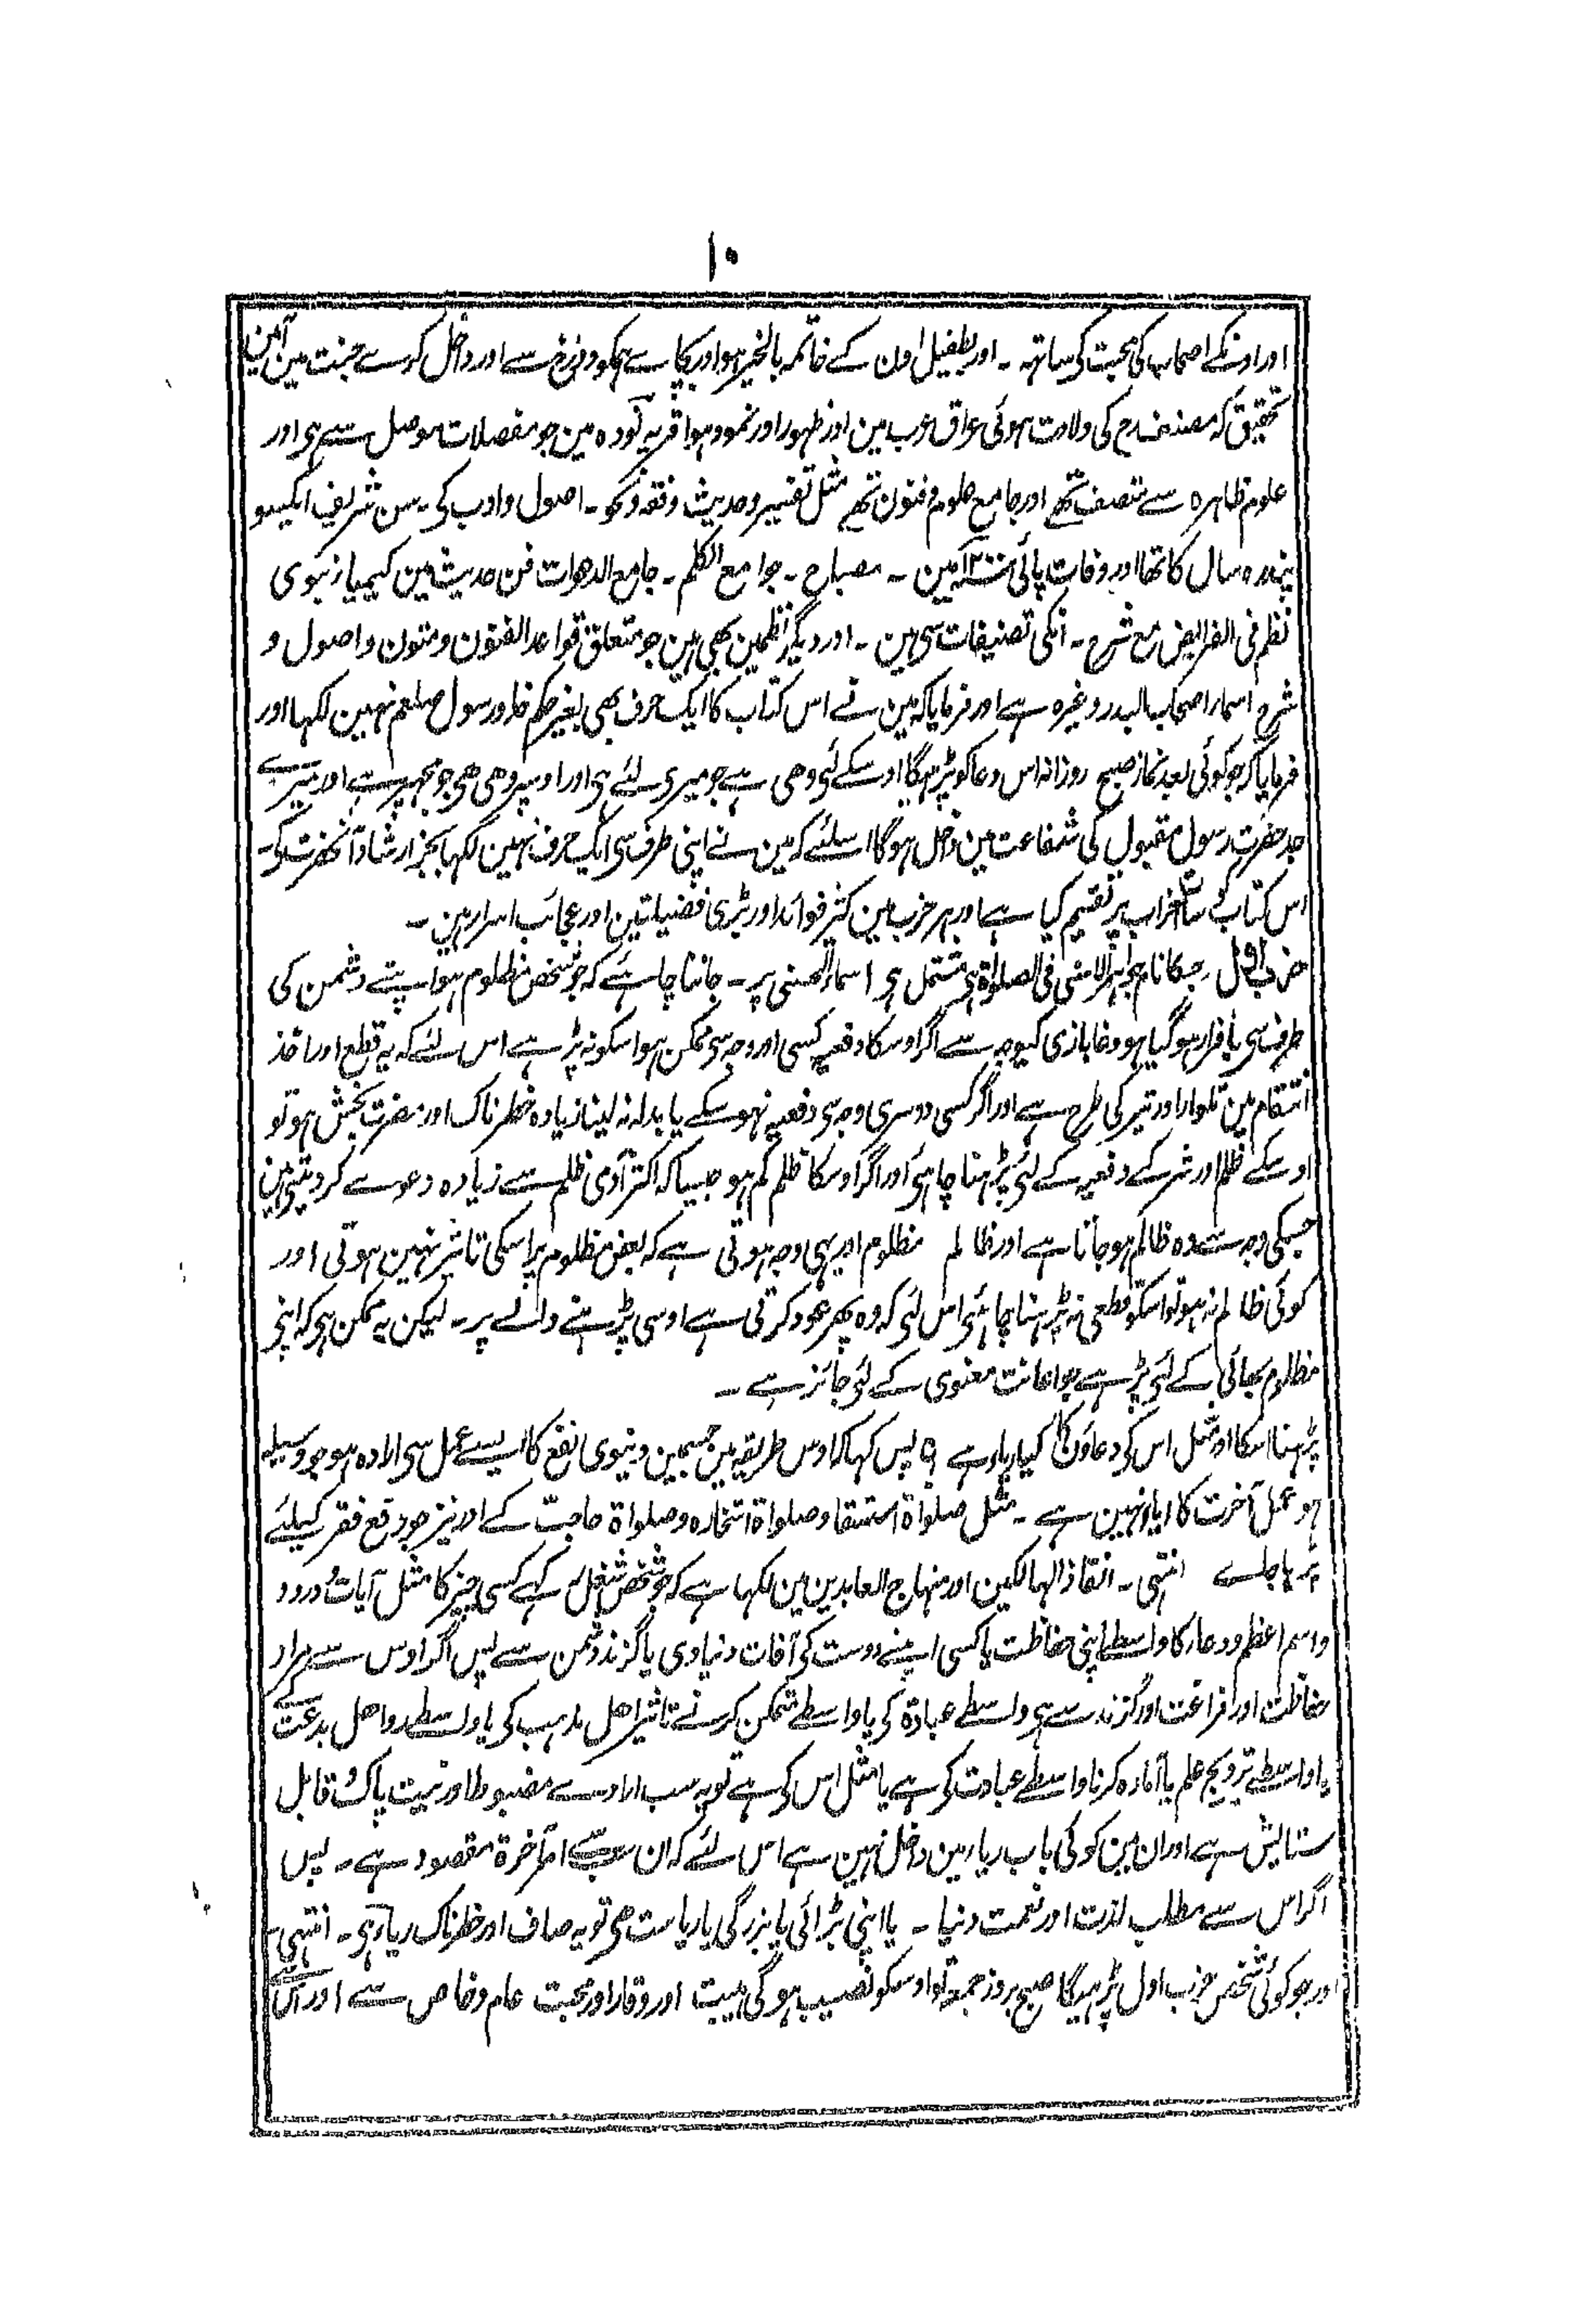 ۱۰
اور اونکے اصحاب کی محبت کی ساتہہ ۔ اور بطفیل اون کے خاتمہ بالخیر ہو اور بچاے ہمکو دوزخ سے اور داخل کرے جنت مین آمین
تحقیق کہ مصنف رح کی ولادت ہوئی عراق عرب مین اور ظہور اور نمود ہوا قریہ نودہ مین جو مفصلات موصل سے ہی اور
علوم ظاہرہ سے متصف تھے اور جامع علوم و فنون تھے مثل تفسیر و حدیث و فقہ و نحو ۔ اصول و ادب کی ۔ سن شریف ایکسو
پندرہ سال کا تھا اور وفات پائی مین ۔ مصباح ۔ جوامع الکلم ۔ جامع الدعوات فن حدیث مین کیمیاز نبوی
نظم فی الفرایض مع شرح ۔ انکی تصنیفات سی ہین ۔ اور دیگر نظمین بھی ہین جو متعلق قواعد الفنون و متون و اصول و
شرح اسمار اصحاب البدر وغیرہ ہے اور فرمایا کہ مین نے اس کتاب کا ایک حرف بھی بغیر حکم خدا و رسول صلعم نہین لکہا اور
فرمایا کہ جو کوئی بعد نماز صبح روزانہ اس دعا کو پڑہیگا اوسکے لئی وھی ہے جو میری لئے ہی اور اوسپر وھی ھی جو مجہپر ہے اور میرے
جد حضرت رسول مقبول کی شفاعت مین داخل ہوگا اسلئے کہ مین نے اپنی طرف سی ایک حرف نہین لکہا بجز ارشاد آنحضرت کی ۔
اس کتاب کو سات احزاب پر تقسیم کیا ہے اور ہر حزب مین کثیر فوائد اور بڑی فضیلتین اور عجائب اسرار ہین ۔
حزب اول ۔ جسکا نام جواہر الاسنی فی الصلواۃ ہی مشتمل ہی اسمار الحسنی پر ۔ جاننا چاہئے کہ جو شخص مظلوم ہو اپنے دشمن کی
طرف سی یا فرار ہوگیا ہو دغا بازی کیوجہ سے اگر اوسکا دفعیہ کسی اور وجہ سی ممکن ہو اسکو نہ پڑہے اس لئے کہ یہ قطع اور اخذ
انتقام مین تلوار اور تیر کی طرح ہے اور اگر کسی دوسری وجہ سی دفعیہ نہو سکے یا بدلہ نہ لینا زیادہ خطرناک اور مضرت بخش ہو تو
اوسکے ظلم اور شر کے دفعیہ کے لئی پڑہنا چاہی اور اگر اوسکا ظلم کم ہو جیسا کہ اکثر آدمی ظلم سے زیادہ دعوے کر دیتی ہین
جسکی وجہ سے وہ ظالم ہو جاتا ہے اور ظالم مظلوم اور یہی وجہ ہوتی ہے کہ بعض مظلوم پر اسکی تاثیر نہین ہوتی اور
کوئی ظالم نہ ہو تو اسکو قطعی نہ پڑہنا چاہئی اس لئی کہ وہ پھر عود کرتی ہے اوسی پڑہنے والے پر ۔ لیکن یہ ممکن ہی کہ اپنی
مظلوم بھائی کے لئی پڑہے جو اعانت معنوی کے لئی جائز ہے ۔
پڑہنا اسکا اور مثل اس کی دعاؤن کا کیا ریاء ہے ؟ پس کہا کہ اوس طریقہ مین جسمین دنیوی نفع کا ایسے عمل سی ارادہ ہو جو وسیلہ
ہو عمل آخرت کا ریا نہین ہے ۔ مثل صلواۃ استسقا و صلواۃ استخارہ و صلواۃ حاجت کے اور نیز جو دفع فقر کیلئے
پڑہا جاے انتہی ۔ انقاذ الہالکین اور منہاج العابدین مین لکہا ہے کہ جو شخص شغل رکہے کسی چیز کا مثل آیات و درود
و اسم اعظم و دعار کا واسطے اپنی حفاظت یا کسی اپنے دوست کی آفات دنیاوی یا گزند دشمن سے پس اگر اوس سے مراد
حفاظت اور فراغت اور گزند سے ہی واسطے عبادۃ کی یا واسطے متمکن کرنے تاثیر اھل مذہب کی یا واسطے رد اھل بدعت کے
یا واسطے ترویج علم یا آمادہ کرنا واسطے عبادت کی ہے یا مثل اس کی ہے تو یہ سب ارادے مضبوط اور نیت پاک و قابل
ستایش ہے اور ان مین کوئی باب ریا مین داخل نہین ہے اس لئے کہ ان سب سے امر آخرۃ مقصود ہے ۔ پس
اگر اس سے مطلب لذت اور نعمت دنیا ۔ یا اپنی بڑائی یا بزرگی یا ریاست ھی تو یہ صاف اور خطرناک ریاء ہی ۔ انتہی ۔
اور جو کوئی شخص حزب اول پڑہیگا صبح بروز جمعہ تو اوسکو نصیب ہوگی ہیبت اور وقار اور محبت عام و خاص سے اور اس سے